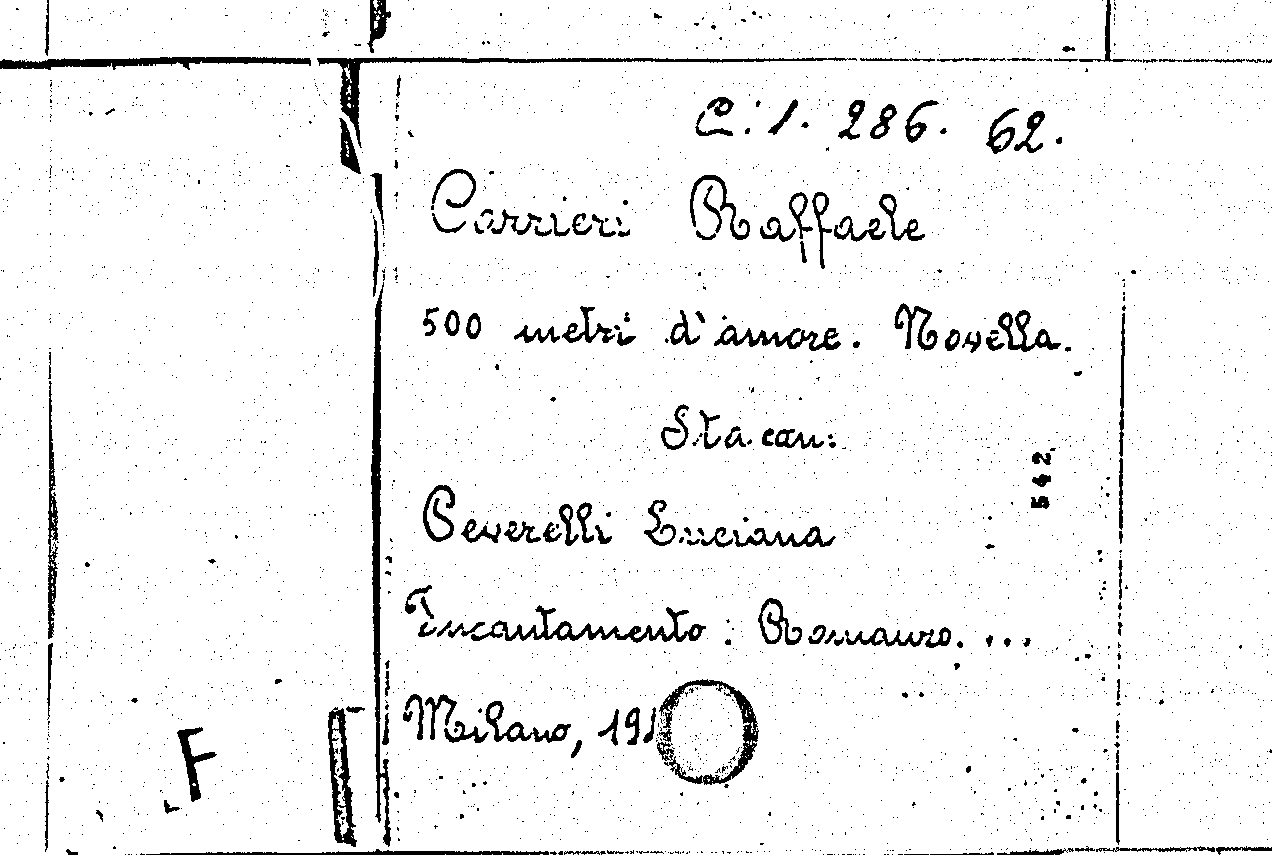 C. 1. 286. 62.
Carrieri Raffaele
500 metri d'amore. Novella.
Sta con:
Peverelli Luciana
Incantamento: Romanzo. ...
Milano, 19
542
F